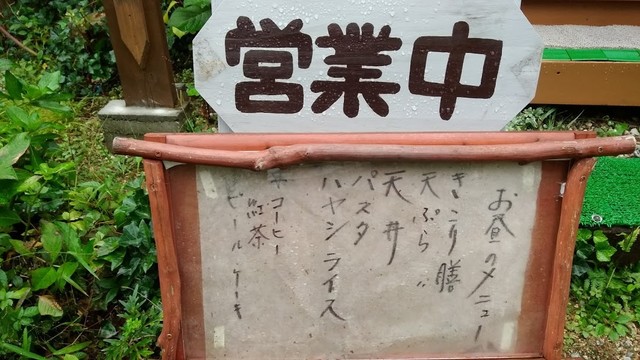 営業中
お昼のメニュー
きこり膳
天ぷら〃
天丼
パスタ
ハヤシライス
コーヒー
紅茶
ビール ケーキ